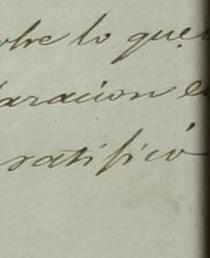 obre lo que
laracion e
ratificó